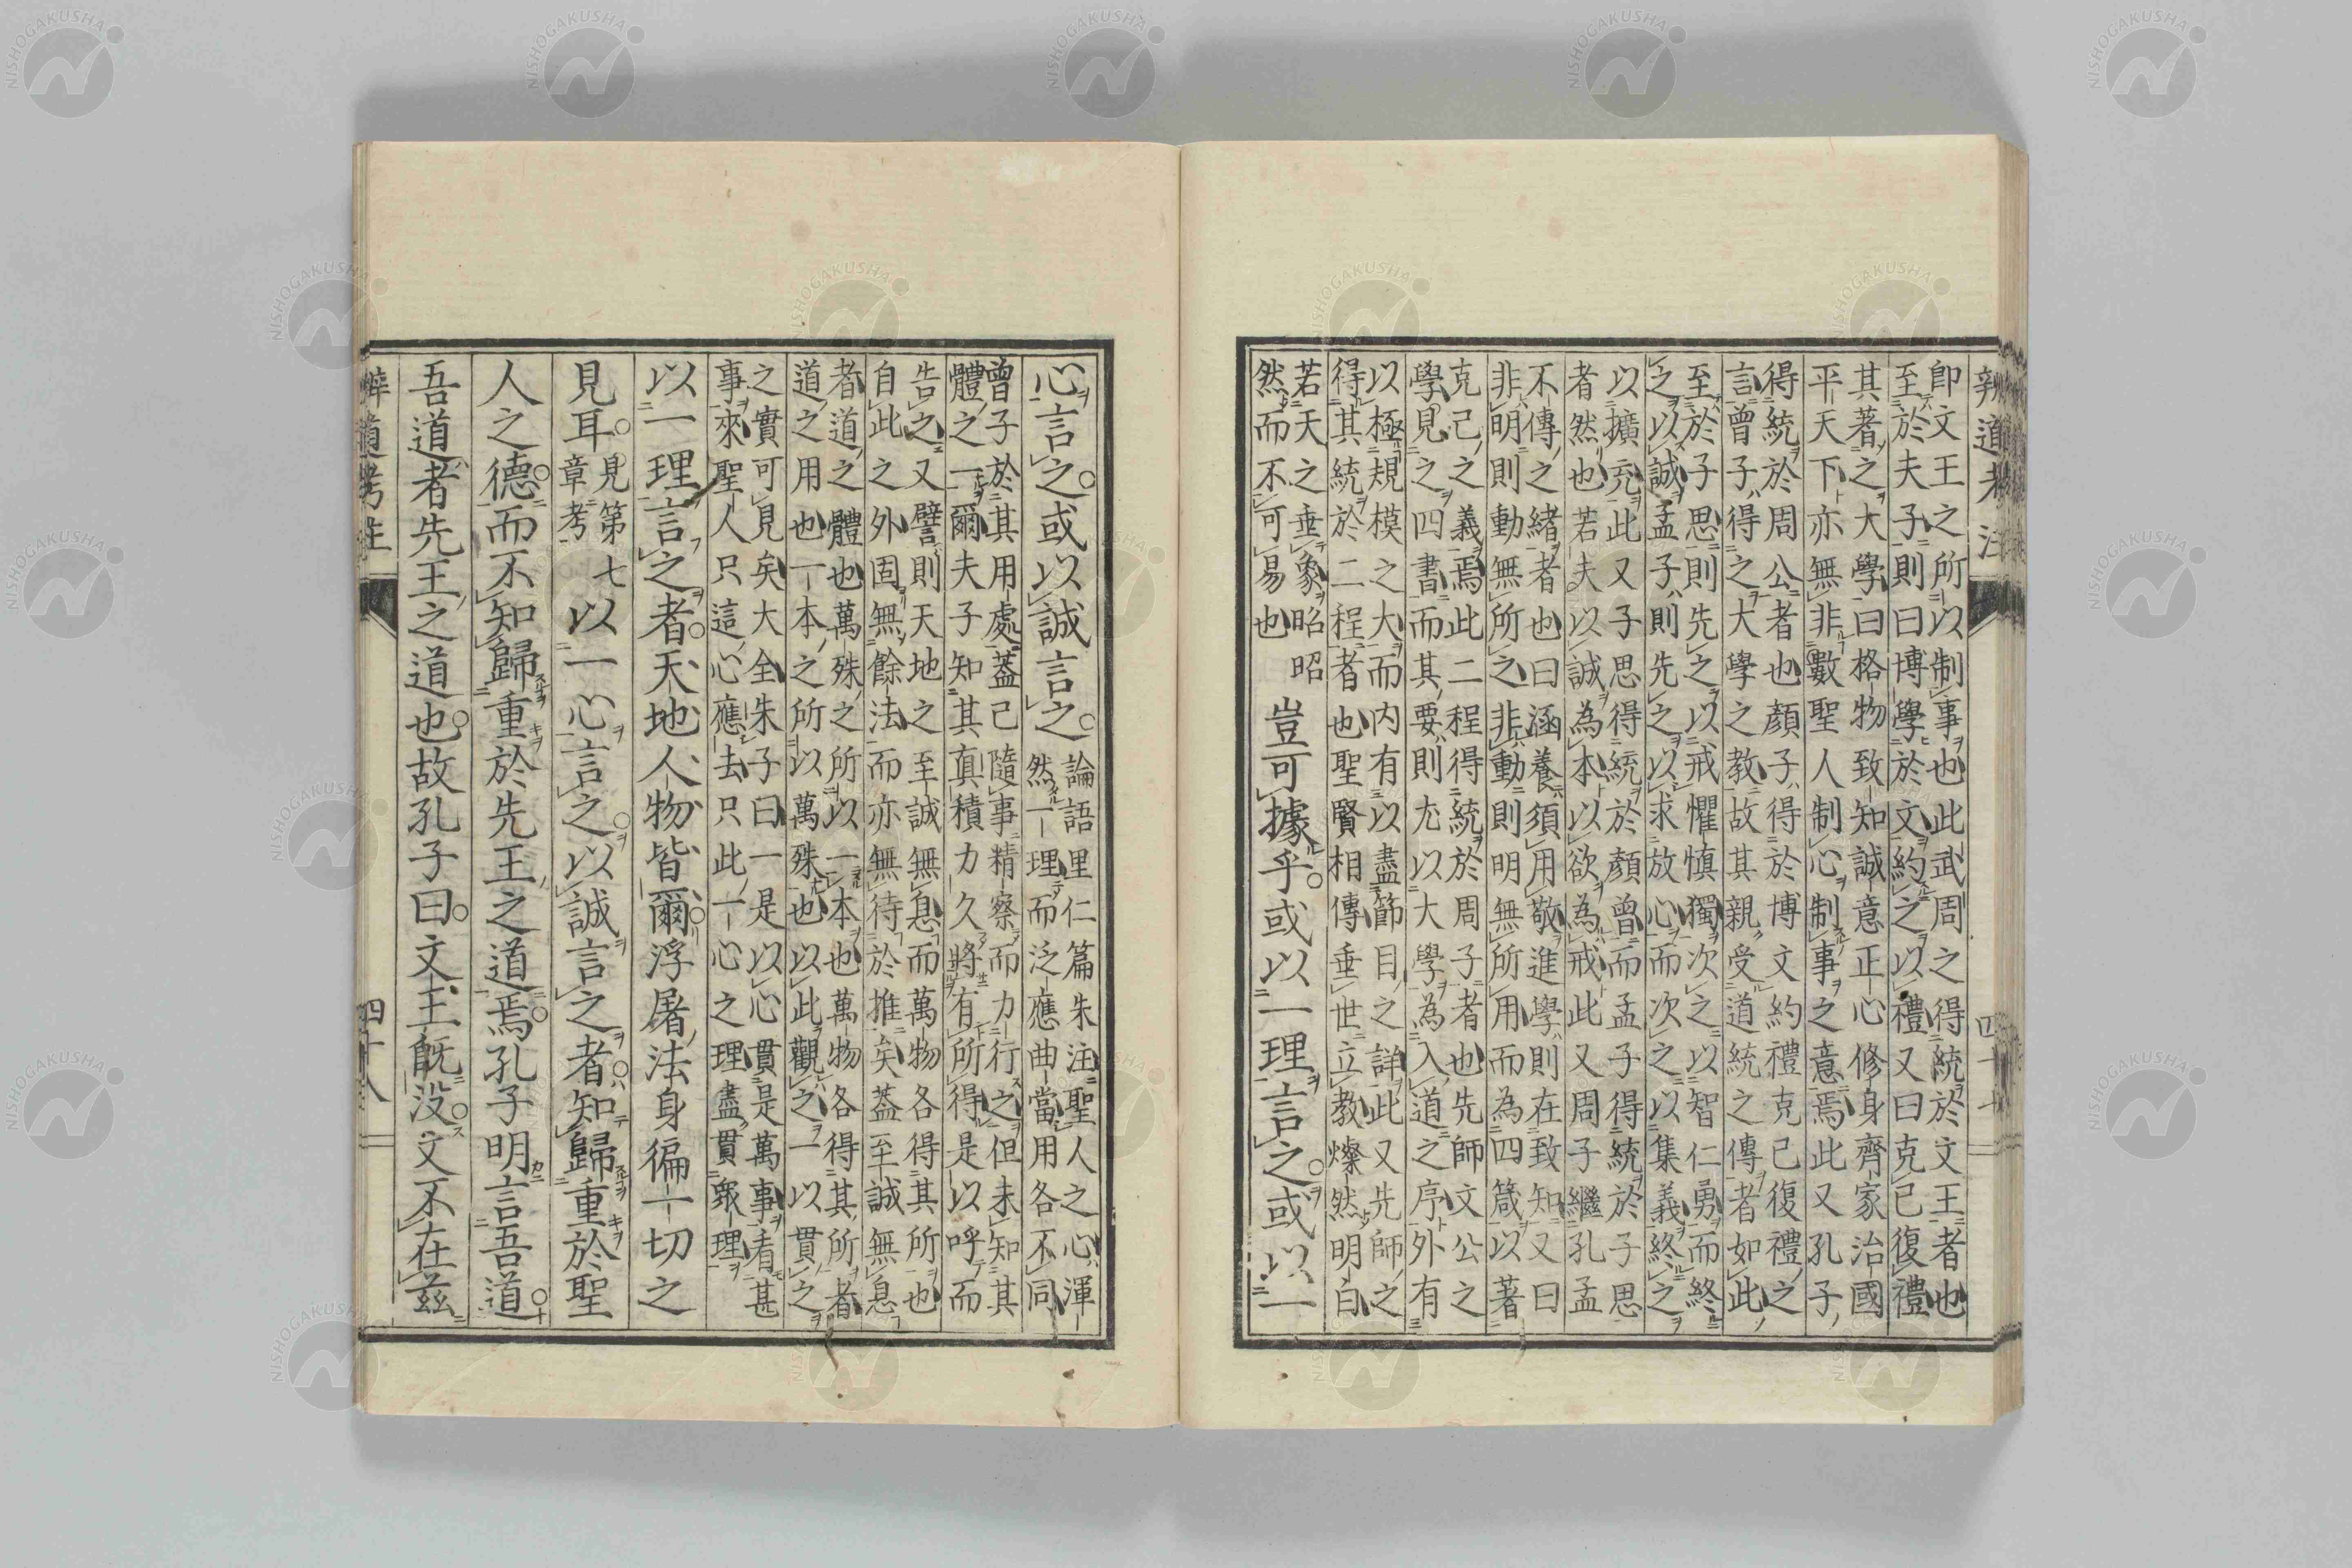 辨道考注
卽文王之所以制事也此武周之得統於文王者也
至於夫子則曰博學於文約之以禮又曰克己復禮
其著之大學曰格物致知誠意正心修身齊家治國
平天下亦無非數聖人制心制事之意焉此又孔子
得統於周公者也顏子得於博文約禮克己復禮之
言曾子得之大學之教故其親受道統之傳者如此
至於子思則先之以戒懼愼獨次之以智仁勇而終
之以誠孟子則先之以求放心而次之以集義終之
以擴充此又子思得統於顏曾而孟子得統於子思
者然也若夫以誠為本以欲為戒此又周子繼孔孟
不傳之緒者也曰涵養須用敬進學則在致知又曰
非明則動無所之非動則明無所用而為四箴以著
克己之義焉此二程得統於周子者也先師文公之
學見之四書而其要則尤以大學為入道之序外有
以極規模之大而内有以盡節目之詳此又先師之
得其統於二程者也聖賢相傳垂世立教燦然明白
若天之垂象昭昭
然而不可易也
豈可據乎或以一理言之或以一
心言之或以誠言之
論語里仁篇朱注聖人之心渾
然一理而泛應曲當用各不同
曾子於其用處蓋已隨事精察而力行之但未知其
體之一爾夫子知其眞積力久將有所得是以呼而
告之又譬則天地之至誠無息而萬物各得其所也
自此之外固無餘法而亦無待於推矣蓋至誠無息
者道之體也萬殊之所以一本也萬物各得其所者
道之用也一本之所以萬殊也以此觀之一以貫之
之實可見矣大全朱子曰一是以心貫是萬事看甚
事來聖人只這心應去只此一心之理盡貫衆理
以一理言之者天地人物皆爾浮屠法身徧一切之
見耳
見第七
章考
以一心言之以誠言之者知歸重於聖
人之德而不知歸重於先王之道焉孔子明言吾道
吾道者先王之道也故孔子曰文王既没文不在兹
辨道考注
四十八